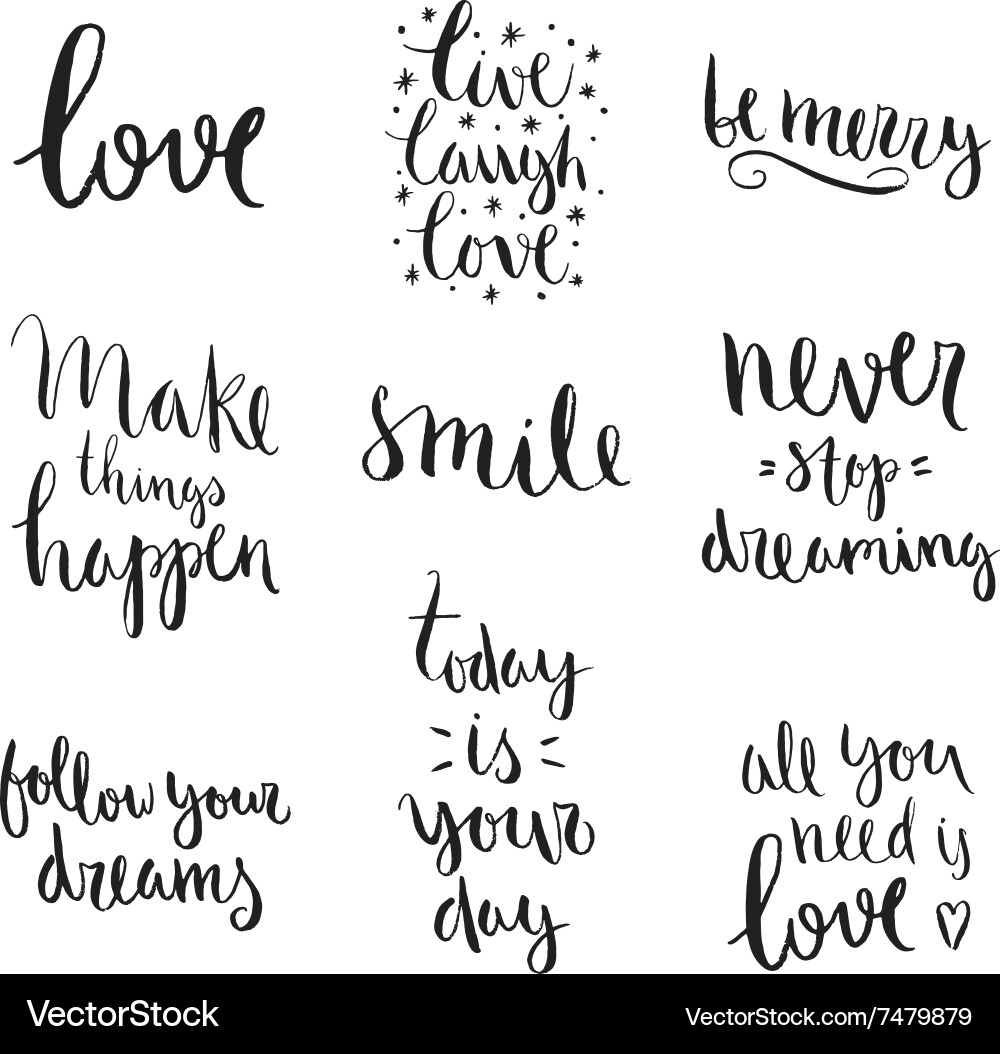 love
live
laugh
love
be merry
Make
things
happen
smile
never
stop
dreaming
follow your
dreams
today
is
your
day
all you
need is
love
VectorStock
VectorStock.com/7479879